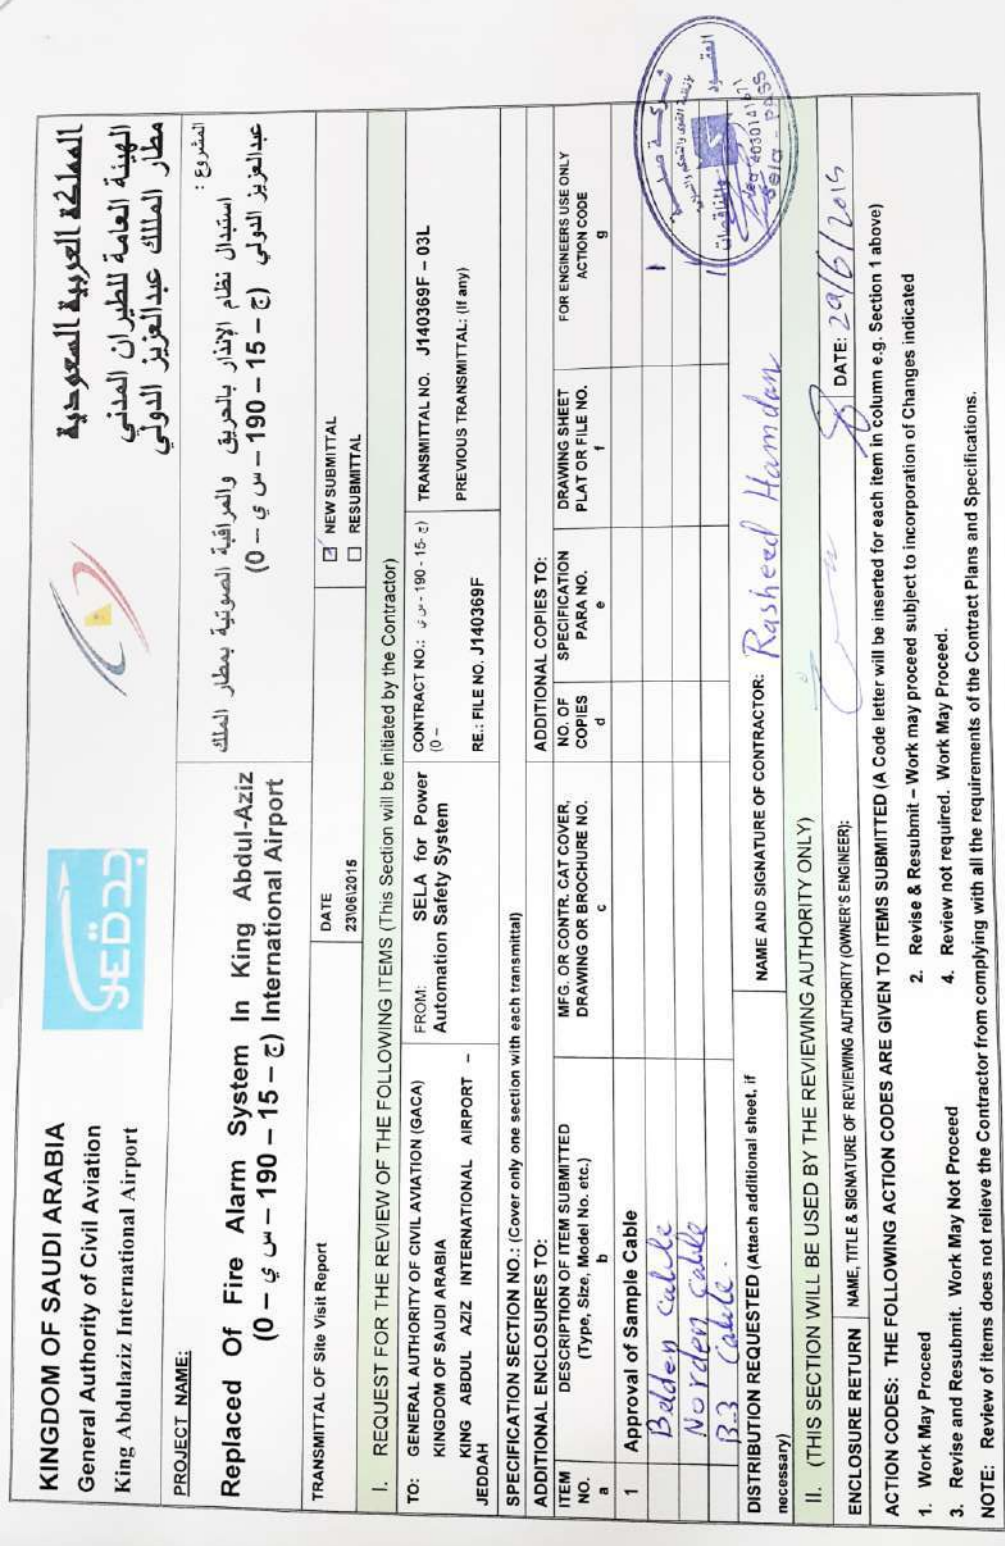 KINGDOM OF SAUDI ARABIA
General Authority of Civil Aviation
King Abdulaziz International Airport
JEDDAH
المملكة العربية السعودية
الهيئة العامة للطيران المدني
مطار الملك عبدالعزيز الدولي
PROJECT NAME:
Replaced Of Fire Alarm System In King Abdul-Aziz
(0 – س ي – 190 – 15 – ج) International Airport
المشروع :
استبدال نظام الإنذار بالحريق والمراقبة الصوتية بمطار الملك
عبدالعزيز الدولي (ج – 15 – 190 – س ي – 0)
TRANSMITTAL OF Site Visit Report
DATE
23\06\2015
☑ NEW SUBMITTAL
☐ RESUBMITTAL
I. REQUEST FOR THE REVIEW OF THE FOLLOWING ITEMS (This Section will be initiated by the Contractor)
TO: GENERAL AUTHORITY OF CIVIL AVIATION (GACA)
KINGDOM OF SAUDI ARABIA
KING ABDUL AZIZ INTERNATIONAL AIRPORT –
JEDDAH
FROM: SELA for Power
Automation Safety System
CONTRACT NO.: س ي - 190 - 15- ج)
(0 –
RE.: FILE NO. J140369F
TRANSMITTAL NO. J140369F – 03L
PREVIOUS TRANSMITTAL: (If any)
SPECIFICATION SECTION NO.: (Cover only one section with each transmittal)
ADDITIONAL ENCLOSURES TO:
ADDITIONAL COPIES TO:
ITEM NO. a
DESCRIPTION OF ITEM SUBMITTED (Type, Size, Model No. etc.) b
MFG. OR CONTR. CAT COVER, DRAWING OR BROCHURE NO. c
NO. OF COPIES d
SPECIFICATION PARA NO. e
DRAWING SHEET PLAT OR FILE NO. f
FOR ENGINEERS USE ONLY ACTION CODE g
1 Approval of Sample Cable
Belden Cable
Norden Cable
B-3 Cable.
DISTRIBUTION REQUESTED (Attach additional sheet, if
necessary)
NAME AND SIGNATURE OF CONTRACTOR: Rasheed Hamdan
II. (THIS SECTION WILL BE USED BY THE REVIEWING AUTHORITY ONLY)
ENCLOSURE RETURN
NAME, TITLE & SIGNATURE OF REVIEWING AUTHORITY (OWNER'S ENGINEER):
DATE: 29/6/2015
ACTION CODES: THE FOLLOWING ACTION CODES ARE GIVEN TO ITEMS SUBMITTED (A Code letter will be inserted for each item in column e.g. Section 1 above)
1. Work May Proceed
2. Revise & Resubmit – Work may proceed subject to incorporation of Changes indicated
3. Revise and Resubmit. Work May Not Proceed
4. Review not required. Work May Proceed.
NOTE: Review of items does not relieve the Contractor from complying with all the requirements of the Contract Plans and Specifications.
العقود
والمناقصات
4030141671
Sela - PASS